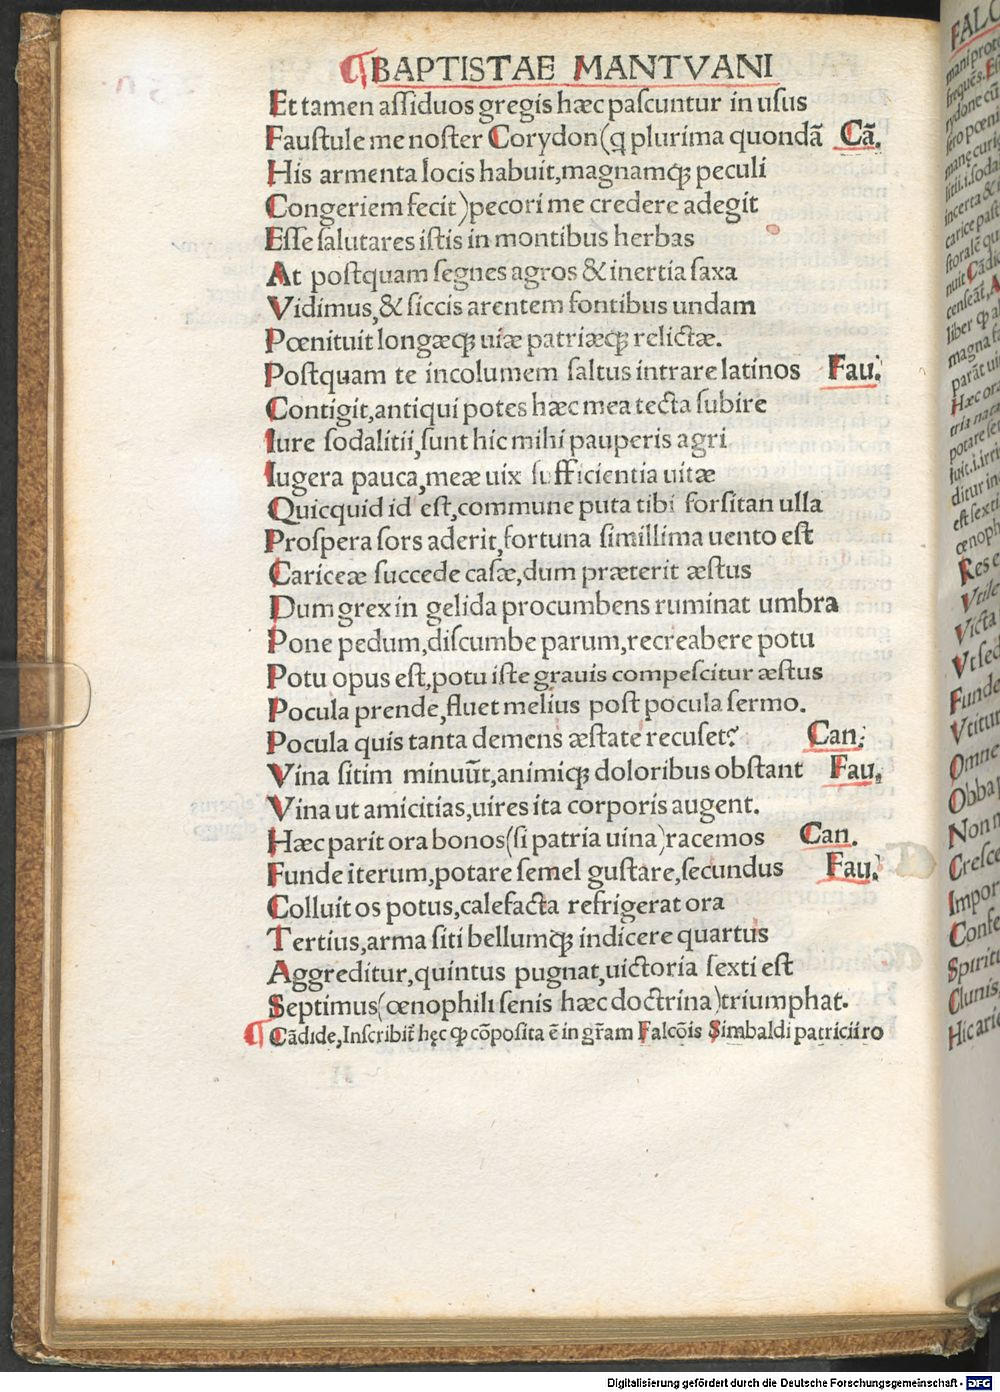 ¶BAPTISTAE MANTVANI
Et tamen aſſiduos gregis hæc paſcuntur in uſus
Fauſtule me noſter Corydon(ꝙ plurima quondã Cã.
His armenta locis habuit,magnamqꝫ peculi
Congeriem fecit)pecori me credere adegit
Eſſe ſalutares iſtis in montibus herbas
At poſtquam ſegnes agros & inertia ſaxa
Vidimus,& ſiccis arentem fontibus undam
Pœnituit longæqꝫ uiæ patriæqꝫ relictæ.
Poſtquam te incolumem ſaltus intrare latinos Fau.
Contigit,antiqui potes hæc mea tecta ſubire
Iure ſodalitii,ſunt hic mihi pauperis agri
Iugera pauca,meæ uix ſufficientia uitæ
Quicquid id eſt,commune puta tibi forſitan ulla
Proſpera ſors aderit,fortuna ſimillima uento eſt
Cariceæ ſuccede caſæ,dum præterit æſtus
Dum grex in gelida procumbens ruminat umbra
Pone pedum,diſcumbe parum,recreabere potu
Potu opus eſt,potu iſte grauis compeſcitur æſtus
Pocula prende,fluet melius poſt pocula ſermo.
Pocula quis tanta demens æſtate recuſet? Can.
Vina ſitim minuũt,animiqꝫ doloribus obſtant Fau.
Vina ut amicitias,uires ita corporis augent.
Hæc parit ora bonos(ſi patria uina)racemos Can.
Funde iterum,potare ſemel guſtare,ſecundus Fau.
Colluit os potus,calefacta refrigerat ora
Tertius,arma ſiti bellumqꝫ indicere quartus
Aggreditur,quintus pugnat,uictoria ſexti eſt
Septimus(œnophili ſenis hæc doctrina)triumphat.
¶Cãdide,Inſcribit̃ hęc ꝙ cõpoſita ẽ in gr̃am Falcõis Simbaldi patricii ro
FALC
mani prot
rydone cũ
fero pœni
manẽ curi
incerta &
carice paſt
ſtoralẽ qu
nuit Cãdi
cenſeãt,A
liber ꝙ al
magna ta
parãt ui
Hæc ora
tria nace
potare ſe
ditur in
eſt ſexti
œnoph
Res e
Vtile
Victa
Vt ſed
Funde
Vtitur
Omne
Obba
Non n
Creſce
Impor
Confe
Spirit
Clunis,
Hic arie
Digitalisierung gefördert durch die Deutsche Forschungsgemeinschaft - DFG